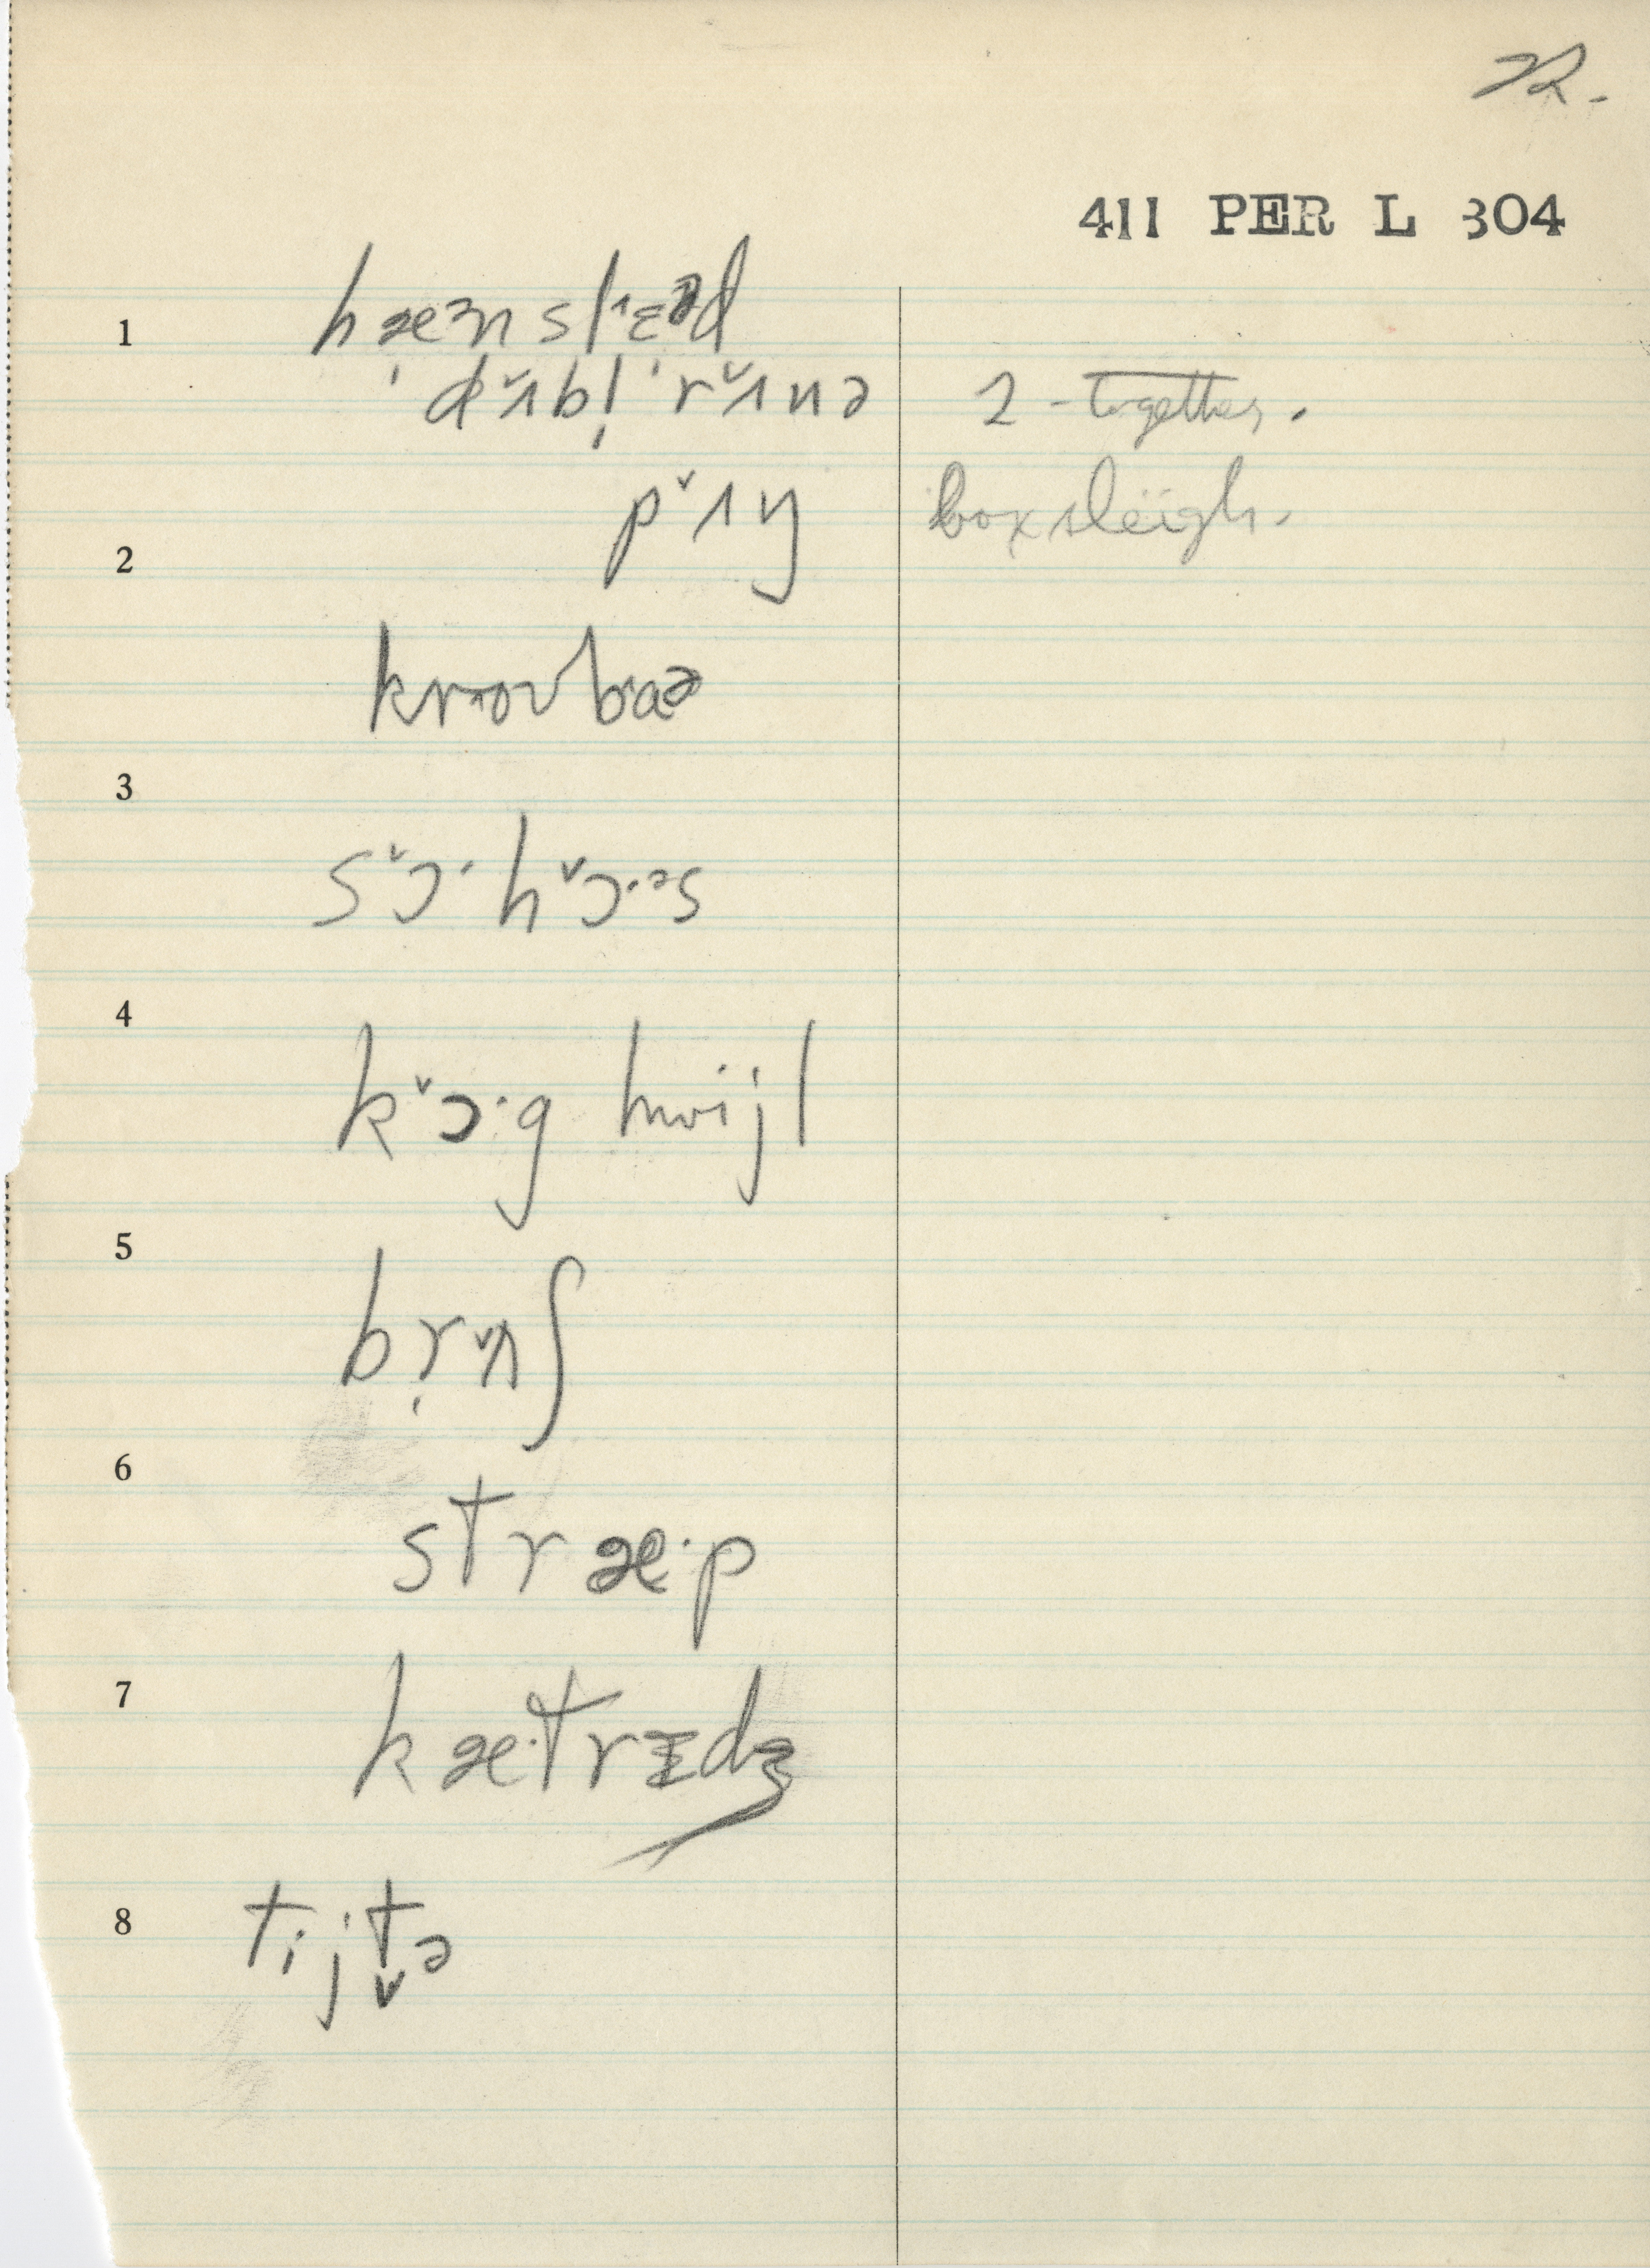 22.
411 PER L 304
1 hæᵊn sl˄ɛᵊd
dʌ̌bl̩ ˈrʌ̌nə 2 - together.
pʌ̌ŋ box sleigh.
2
kr˄oʊbaə
3
sɔ̌· hɔ̌·ᵊs
4
kɔ̌·g hwijl
5
br̩ʌ̌ʃ
6
stræ·p
7 kæ·trɪdʒ
8 tijt̬ə